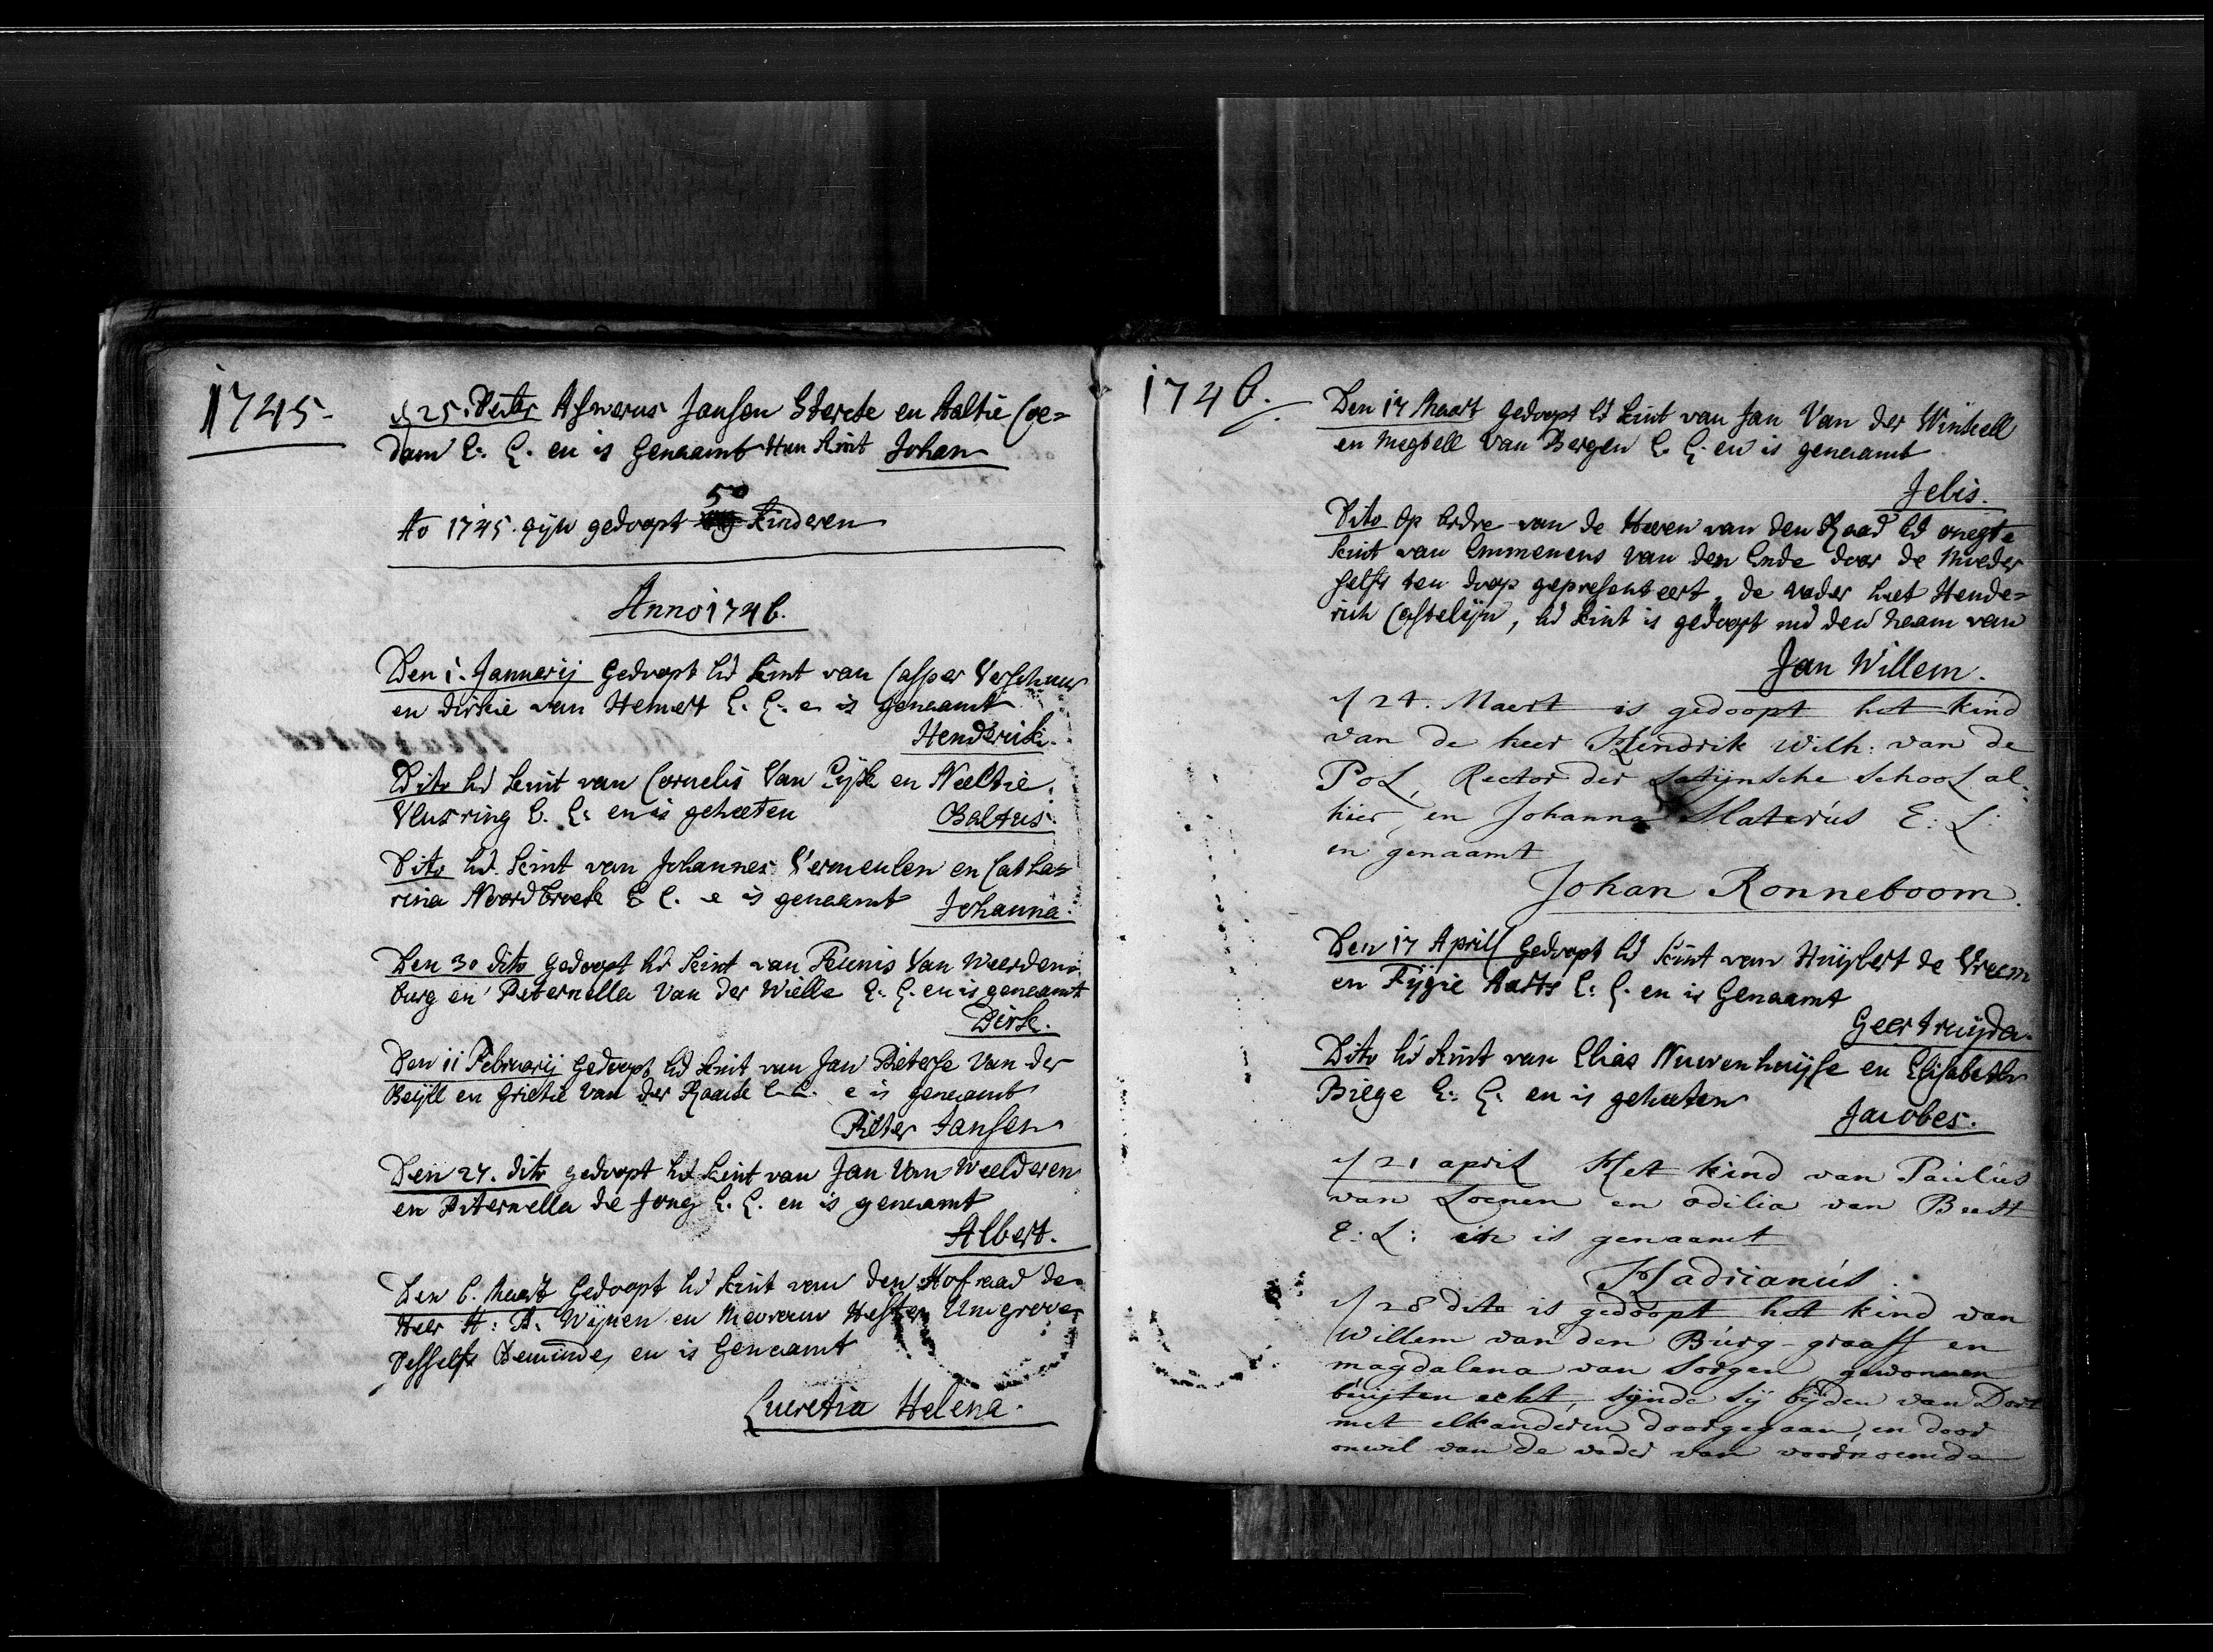 1745.
d 25. Desbr Aswerus Jansen Sterete en Aaltie Coe=
dam E: E. en is Genaamt Hun Kint Johan
50
Ao 1745. zijn gedoopt Kinderen
Anno 1746.
Den 1. Jannerij Gedoopt het kint van Casper Verschuur
en Dirkie van Hemert E. E. e is genaamt
Henderik.
Dito het kint van Cornelis Van Eijk en Neeltie
Vlusring E. E: en is geheeten Baltus.
Dito het kint van Johannes Vermeulen en Catha=
rina Noordbroek E E. e is genaamt Johanna.
Den 30 dito gedoopt het kint van Teunis Van Weerden=
burg en Peternella Van der Wielle E: E. en is genaamt
Dirk.
Den 11 Februarij Gedoopt het kint van Jan Pieterse Van der
Beijll en Grietie Van der Koaik E. E. e is genaamt
Pieter Jansen
Den 27. dito gedoopt het kint van Jan Van Weelderen
en Piternella de Jong E. E. en is genaamt
Albert.
Den 6. Maart Gedoopt het kint van den Hofraad de
Heer H: A: Wijnen en Mevrouw Hester Umgrove
desselfs Beminde, en is Genaamt
Lucretia Helena.
1746.
Den 17 Maart gedoopt het kint van Jan Van der Winkell
en Megtell Van Bergen E. E. en is genaamt
Jelis.
Dito Op Ordre van de Heeren van den Raad het onegte
kint van Emmerens Van den Ende door de Moeder
selfs ten doop gepresenteert, de vader hiet Hende=
rich Castelijn, het kint is gedoopt met den naam van
Jan Willem.
d 24. Maert is gedoopt het kind
van de heer Hendrik Wilh: van de
Pol, Rector der Latijnsche School al=
hier, en Johanna Materus E: L:
en genaamt
Johan Ronneboom.
Den 17 Aprill Gedoopt het kint van Huijbert de Vreem
en Fijgie Aarts E: E. en is Genaamt
Geertruijda.
Dito het kint van Elias Nuwenhuijse en Elisabeth
Biege E: E. en is geheeten
Jacobes.
d 21 april Het kind van Paulus
van Loenen en odilia van Beest
E: L: en is genaamt
Hadrianus.
d 28 dito is gedoopt het kind van
Willem van den Burg-graaff en
magdalena van Sorgen gewonnen
buijten echt, sijnde sij bijden van Dort
met elkanderen doorgegaan, en door
onwil van de vader van voornoemde